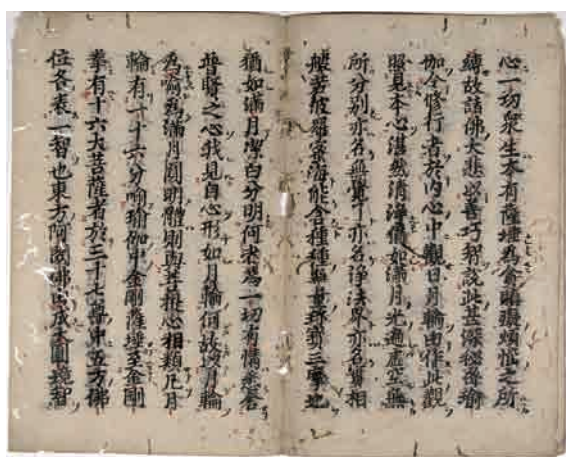 心一切衆生本有薩埵為貪瞋癡煩惱之所
縛故諸佛大悲以善巧智説此甚深秘密瑜
伽令修行者於内心中觀日月輪由作此觀
照見本心湛然清淨猶如滿月光遍虚空無
所分別亦名無覺了亦名淨法界亦名實相
般若波羅蜜海能含種種無量珎寶三摩地
猶如滿月潔白分明何者為一切有情悉含
普賢之心我見自心形如月輪何故以月輪
為喻為滿月圓明體則與菩提心相類凡月
輪有一十六分喻瑜伽中金剛薩埵至金剛
拳有十六大菩薩者於三十七尊中五方佛
位各表一智也東方阿閦佛因成大圓鏡智